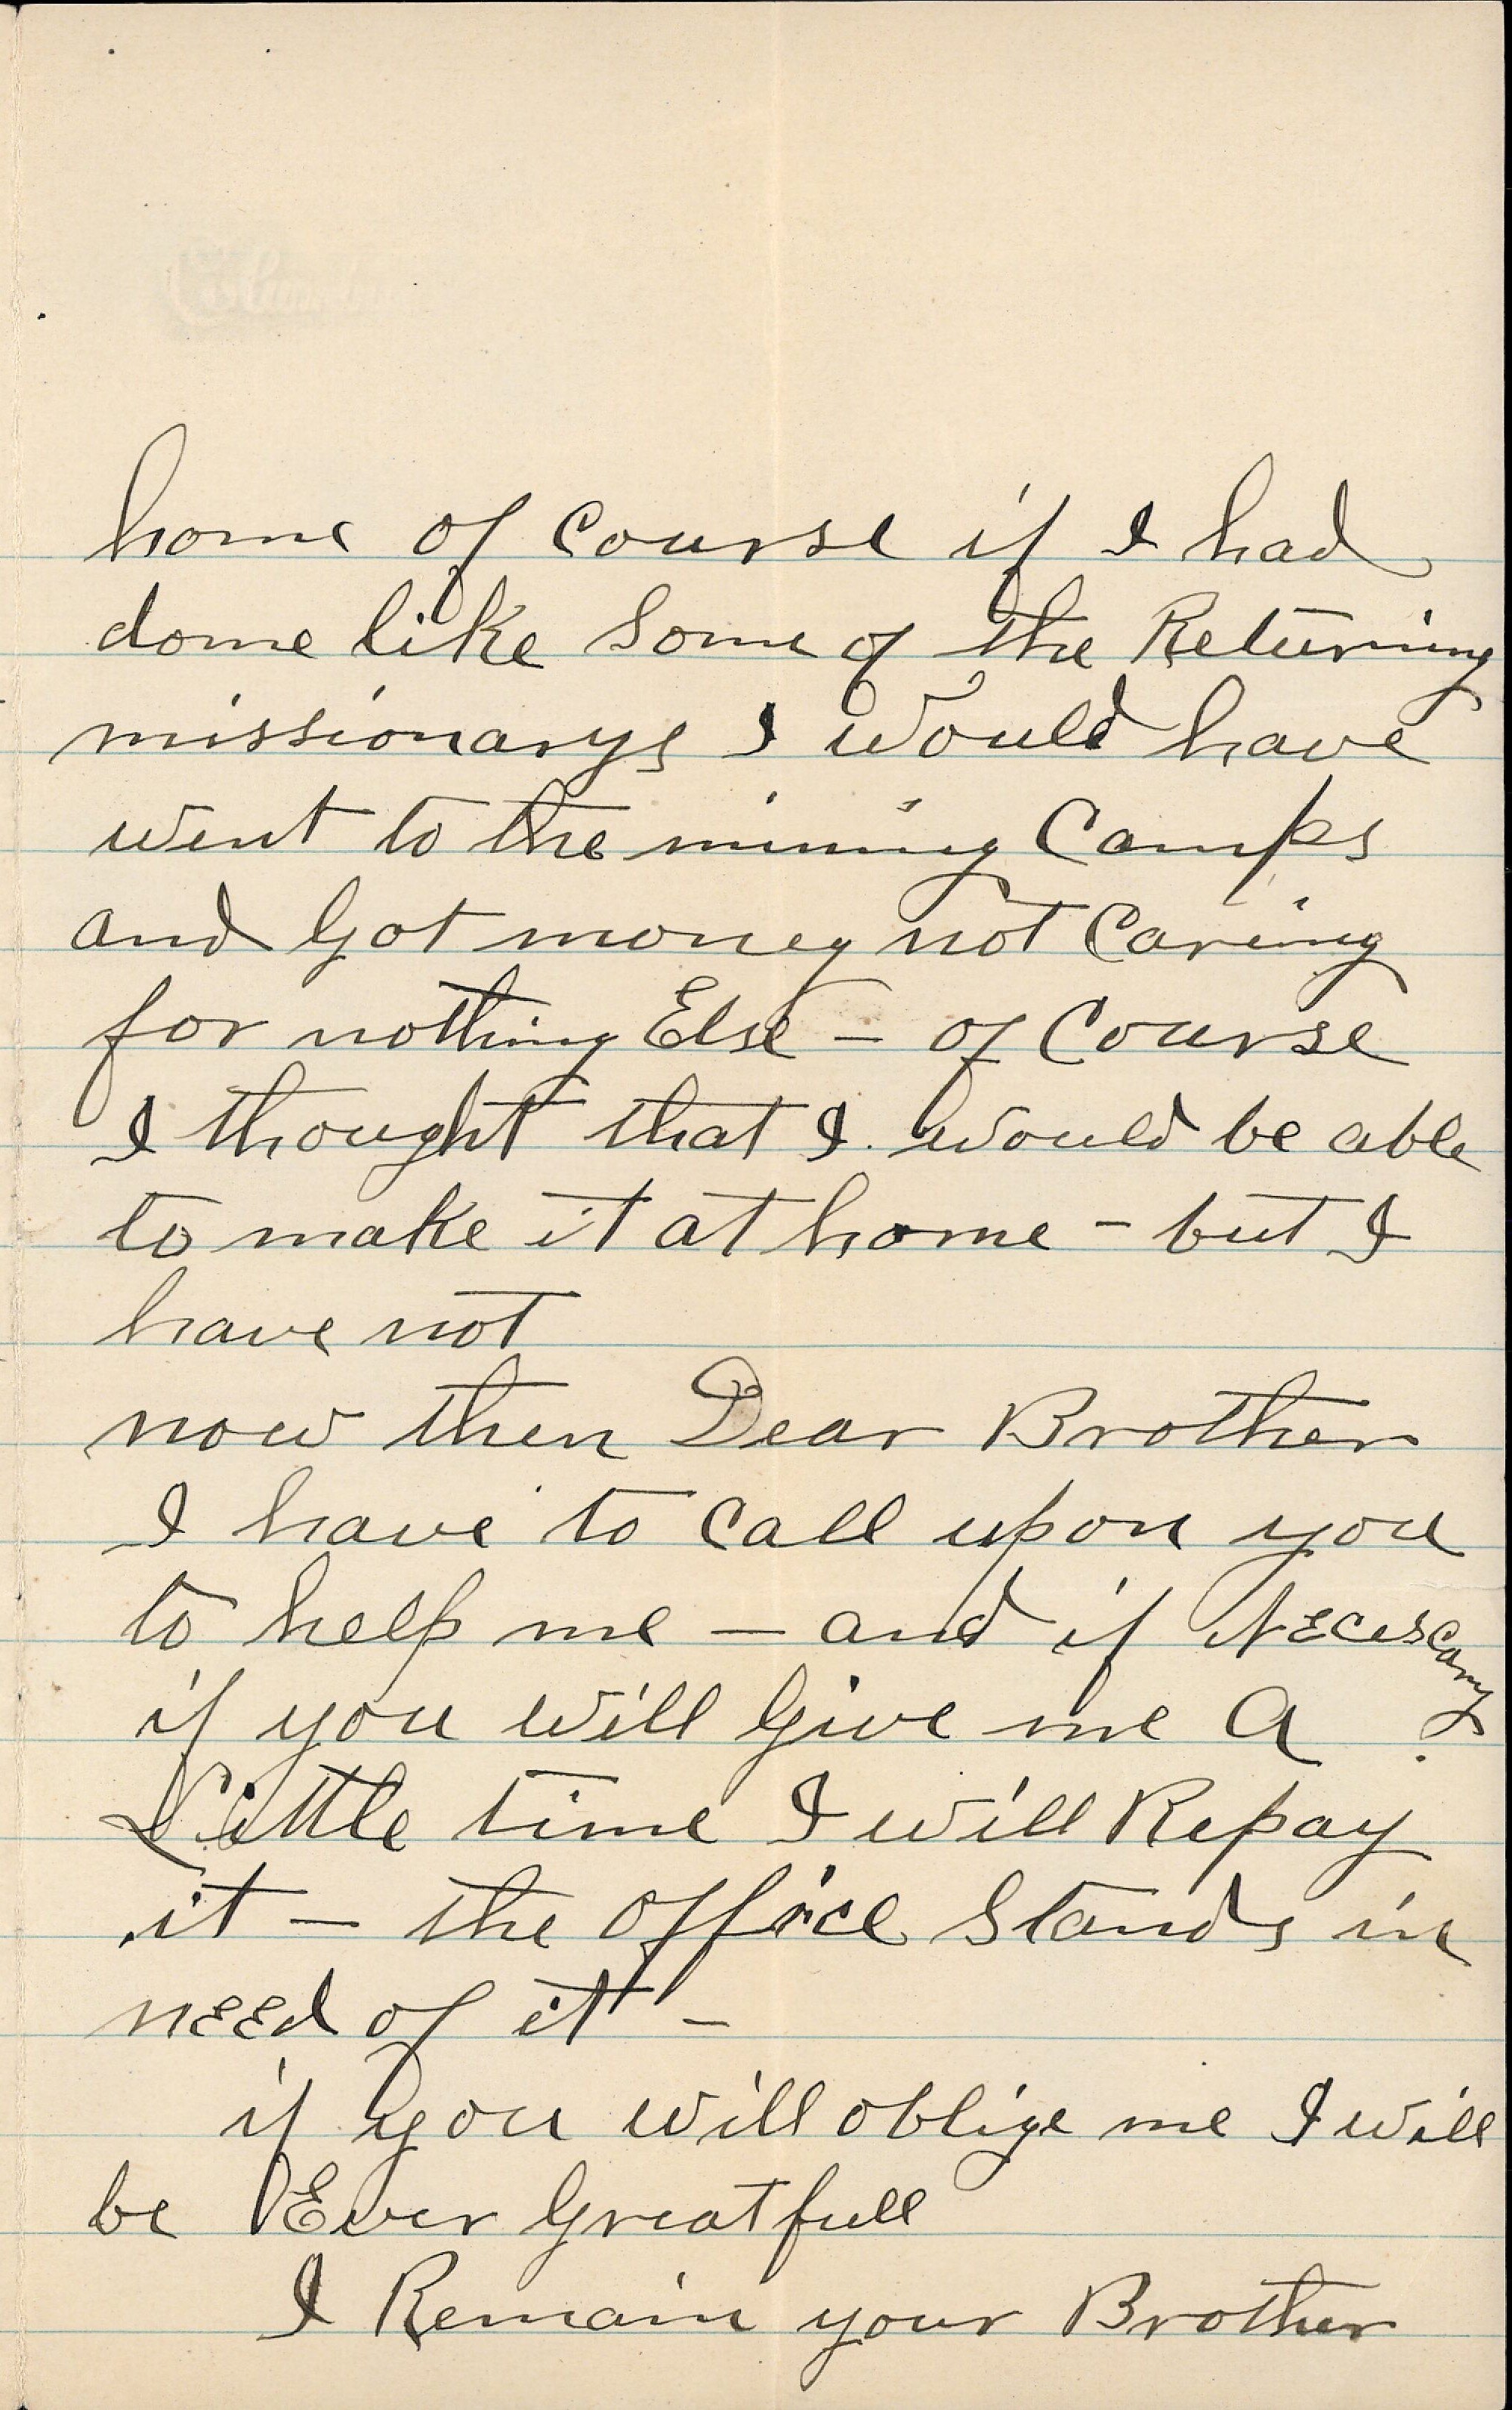 home of course if I had
dome like Some of the Returning
missionarys I would have
went to the mining Camps
and Got money not Caring
for nothing Else – of Course
I thought that I would be able
to make it at home – but I
have not
now then Dear Brother
I have to Call upon you
to help me – and if Necescary
if you will Give me A
Little time I will Repay
it – the office Stands in
need of it –
if you will oblige me I will
be Ever Greatfull
I Remain your Brother